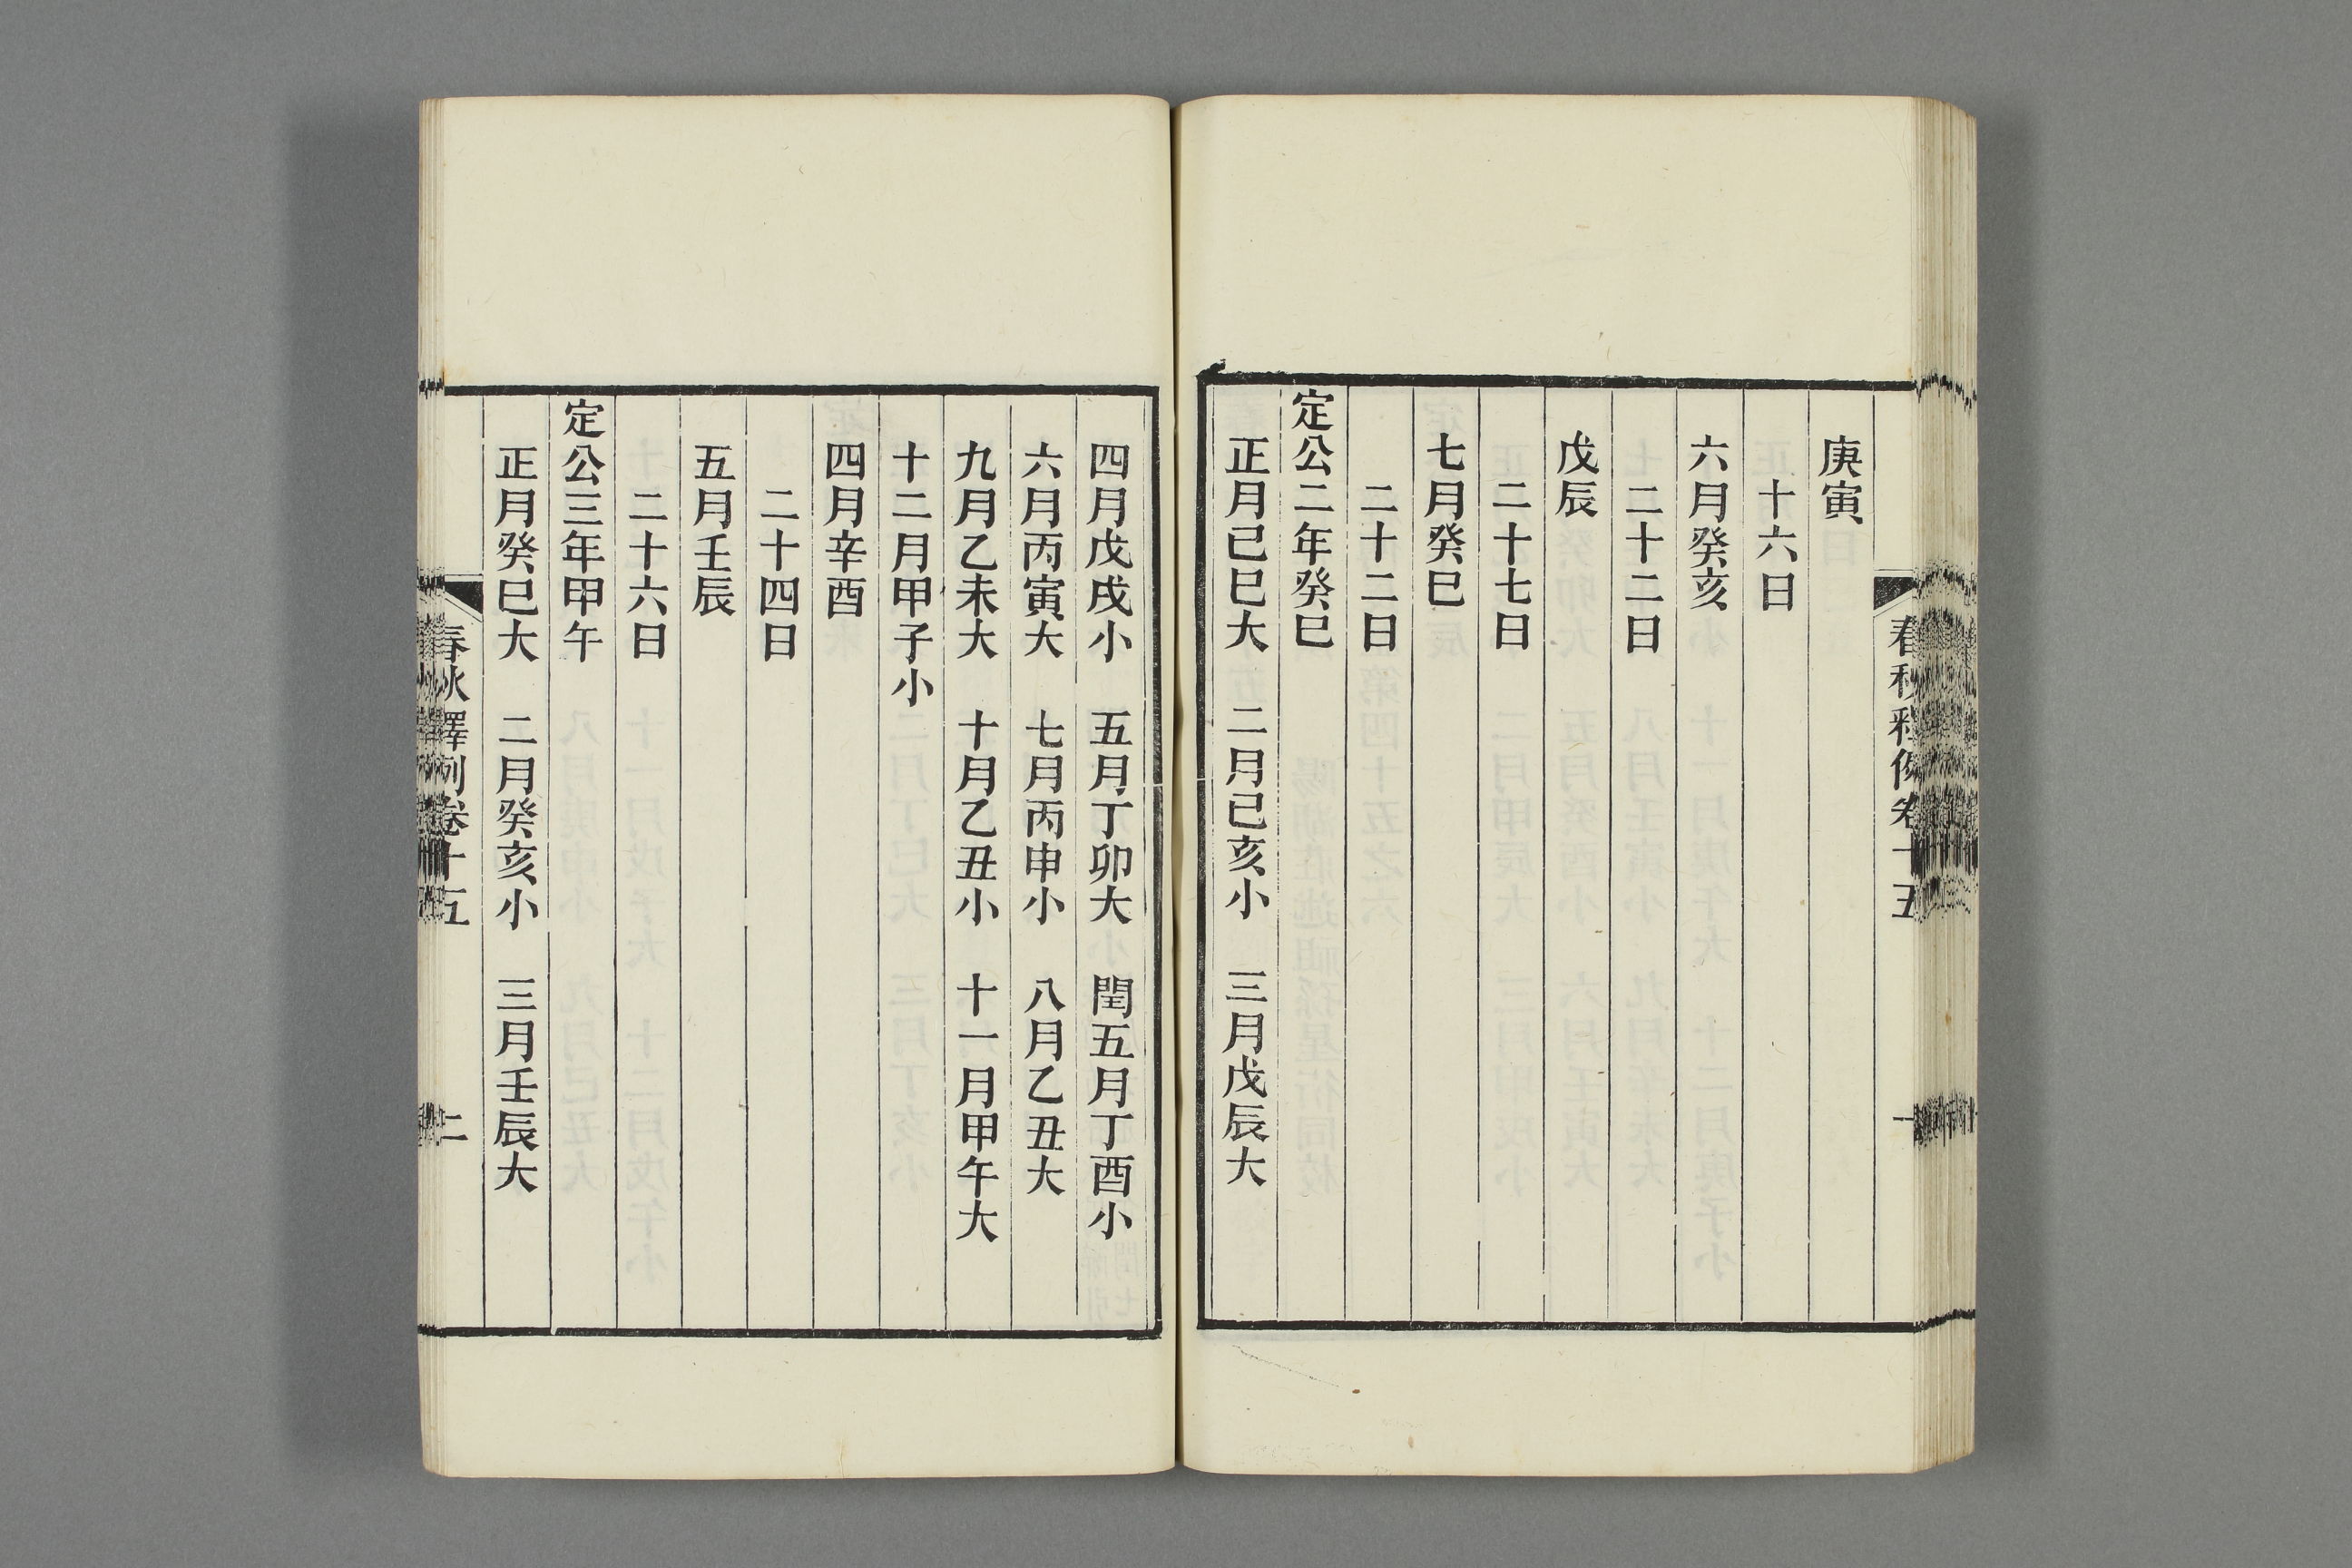 春秋釋例卷十五 一
庚寅
十六日
六月癸亥
二十二日
戊辰
二十七日
七月癸巳
二十二日
定公二年癸巳
正月己巳大 二月己亥小 三月戊辰大
四月戊戌小 五月丁卯大 閏五月丁酉小
六月丙寅大 七月丙申小 八月乙丑大
九月乙未大 十月乙丑小 十一月甲午大
十二月甲子小
四月辛酉
二十四日
五月壬辰
二十六日
定公三年甲午
正月癸巳大 二月癸亥小 三月壬辰大
春秋釋例卷十五 二